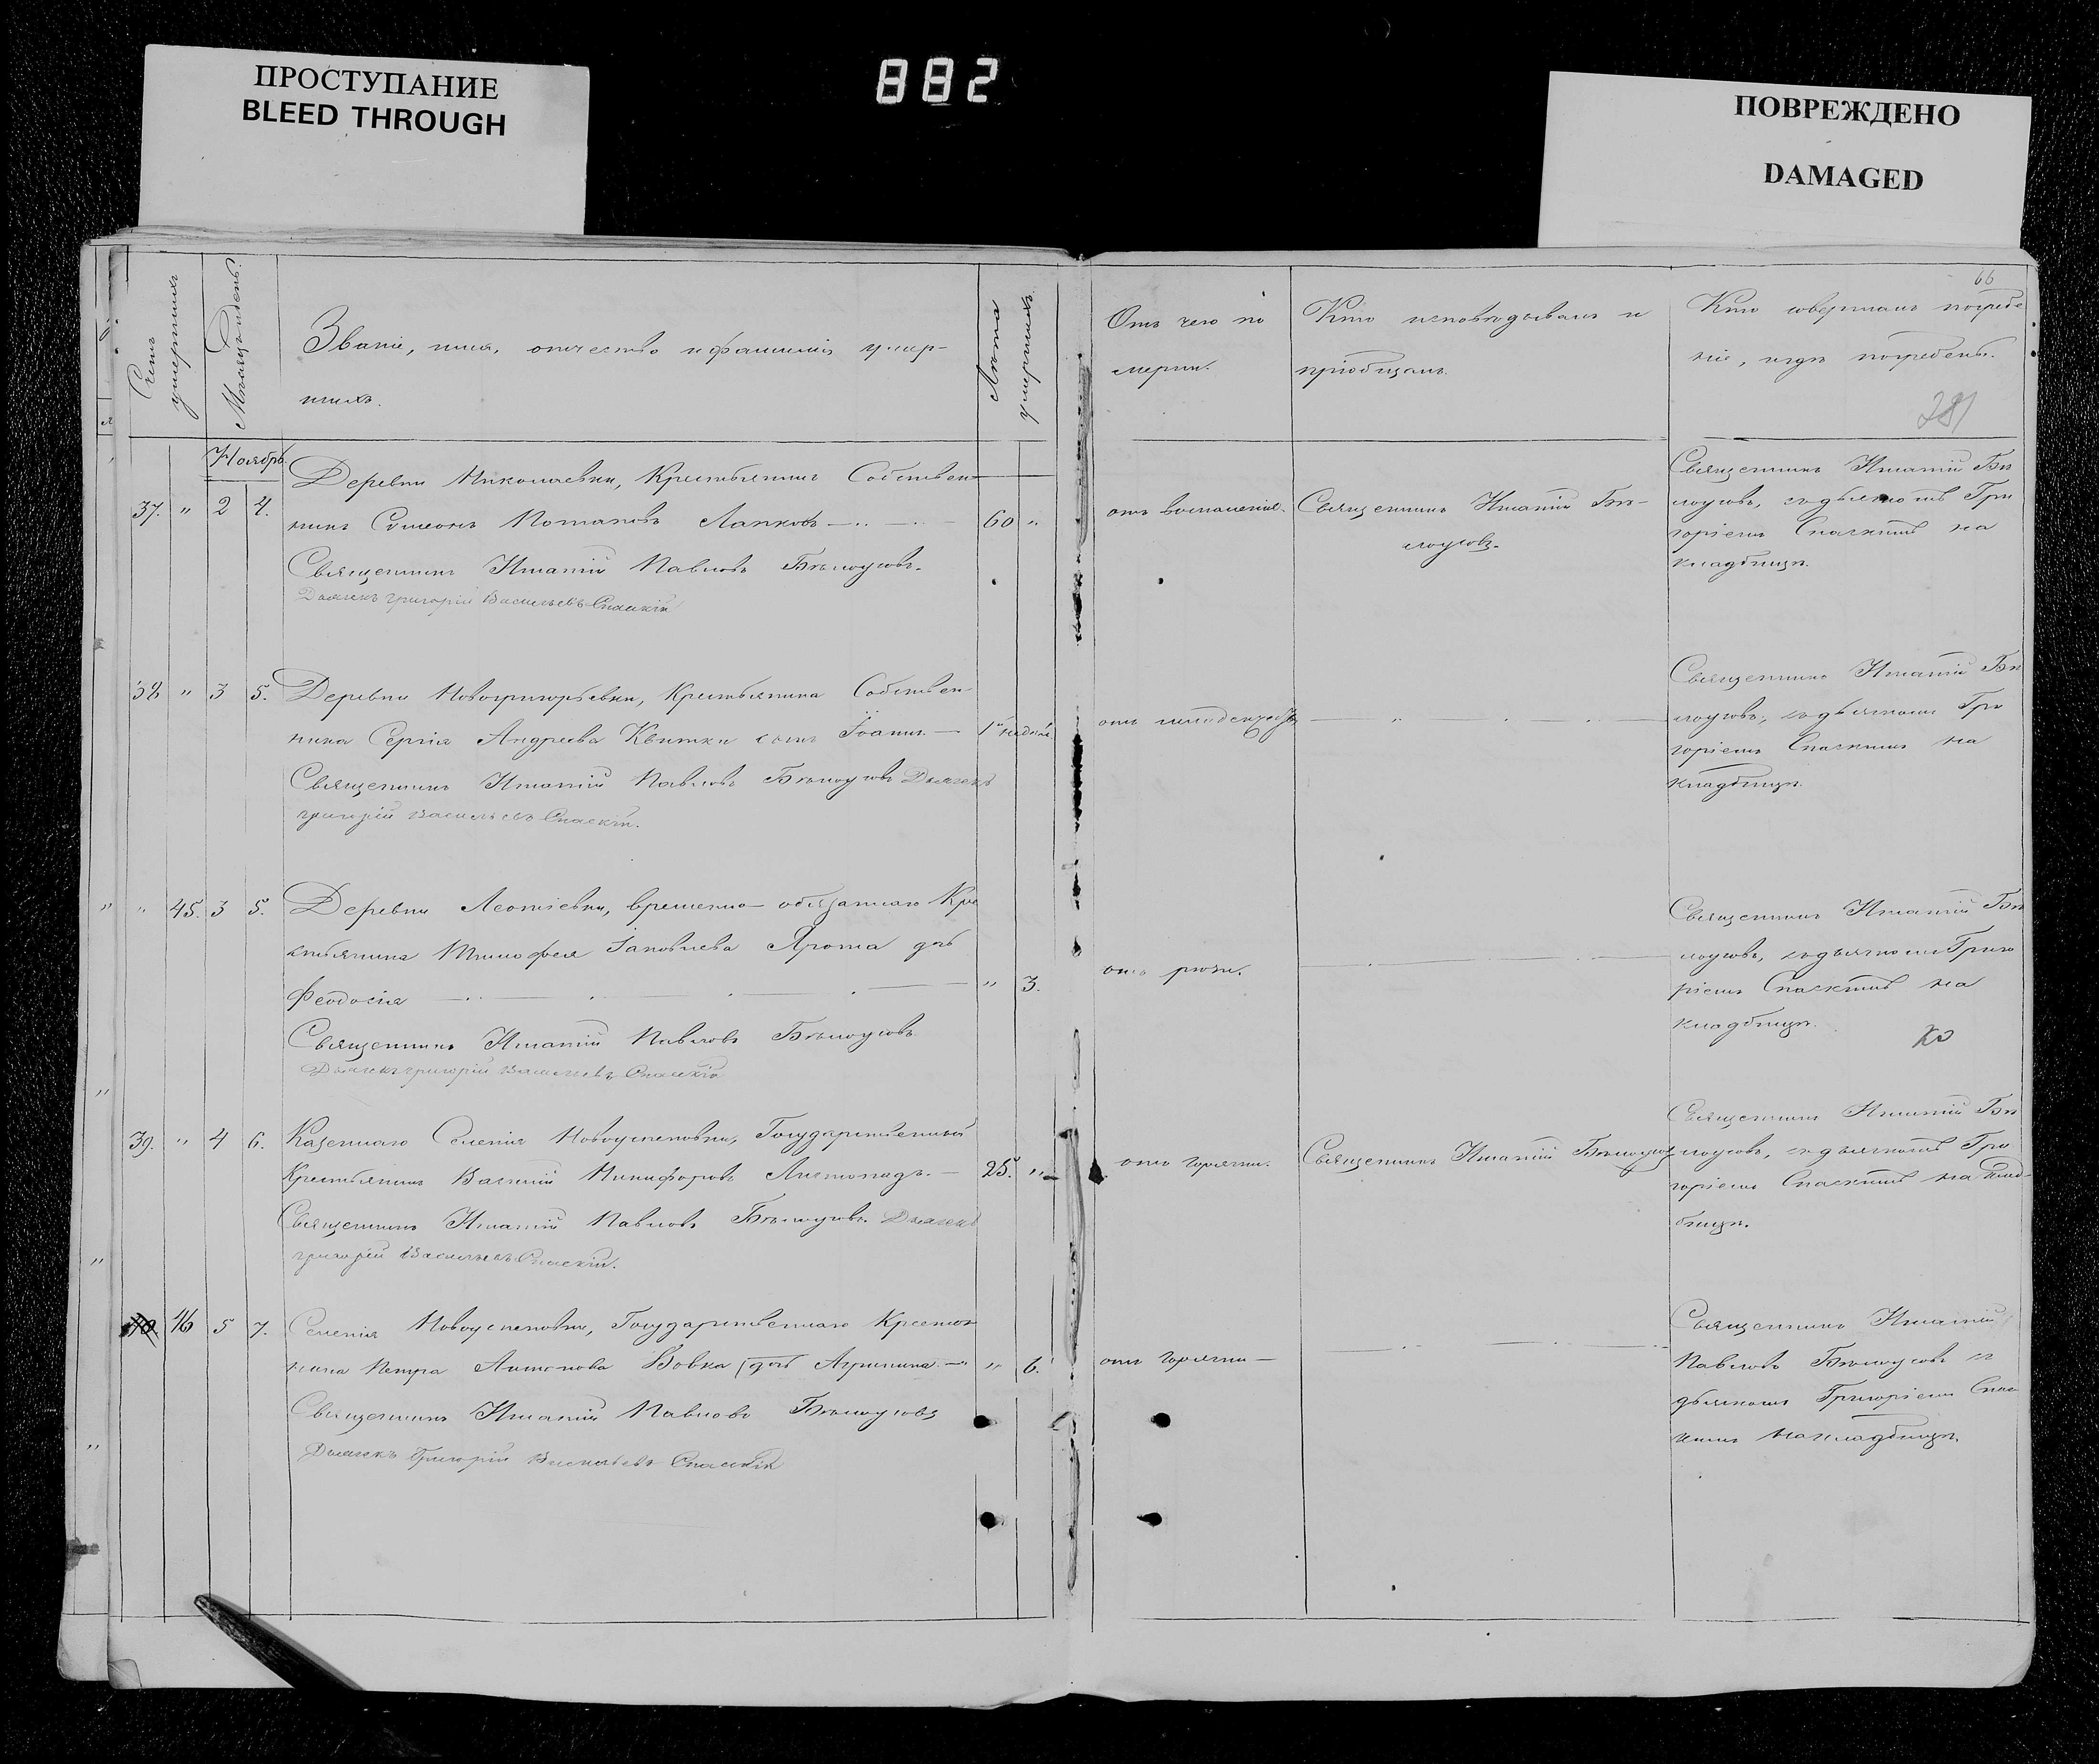 ПРОСТУПАНИЕ
BLEED THROUGH
882
ПОВРЕЖДЕНО
DAMAGED
66
Счетъ умершихъ
Мѣсяцъ и день.
Званіе, имя, отчество и фамилія умер-
шихъ.
Лѣта умершихъ
Отъ чего по
мерли.
Кто исповѣдывалъ и
пріобщалъ.
Кто совершалъ погребе
ніе, и гдѣ погребены.
281
Ноябрь
37. " 2 4.
Деревни Николаевки, Крестьянинъ Собствен-
никъ Симеонъ Потаповъ Лапковъ
60 "
отъ воспаленія.
Священникъ Игнатій Бѣ-
лоусовъ.
Священникъ Игнатій Павловъ Бѣлоусовъ.
Дьячекъ Григорій Васильевъ Спаскій
Священникъ Игнатій Бѣ
лоусовъ, съ дьячкомъ Гри
горіемъ Спаскимъ на
кладбищѣ.
38 " 3 5.
Деревни Новогригорьевки, Крестьянина Собствен-
ника Сергія Андреева Квитки сынъ Іоаннъ. —
Священникъ Игнатій Павловъ Бѣлоусовъ Дьячекъ
Григорій Васильевъ Спаскій.
Священникъ Игнатій Бѣ
лоусовъ, съ дьячкомъ Гри
горіемъ Спаскимъ на
кладбищѣ.
" 45. 3 5.
Деревни Леонтіевки, временно-обязаннаго Кре
стьянина Тимофея Іаковлева Ярота дочь
Феодосія
" 3.
Священникъ Игнатій Павловъ Бѣлоусовъ
Дьячекъ Григорій Васильевъ Спаскій
Священникъ Игнатій Бѣ
лоусовъ, съ дьячкомъ Григо
ріемъ Спаскимъ на
кладбищѣ.
39. " 4 6.
Казеннаго Селенія Новоуспеновки, Государственный
Крестьянинъ Василій Никифоровъ Листопадъ. —
25. "
отъ горячки.
Священникъ Игнатій Бѣлоусовъ
Священникъ Игнатій Павловъ Бѣлоусовъ. Дьячекъ
Григорій Васильевъ Спаскій.
Священникъ Игнатій Бѣ
лоусовъ, съ дьячкомъ Гри
горіемъ Спаскимъ на клад-
бищѣ.
40. 46 5 7.
Селенія Новоуспеновки, Государственнаго Крестья
нина Петра Антонова Вовка дочь Агрипина —
" 6.
отъ горячки —
Священникъ Игнатій Павловъ Бѣлоусовъ
Дьячекъ Григорій Васильевъ Спаскій
Священникъ Игнатій
Павловъ Бѣлоусовъ съ
дьячкомъ Григоріемъ Спас
кимъ на кладбищѣ.